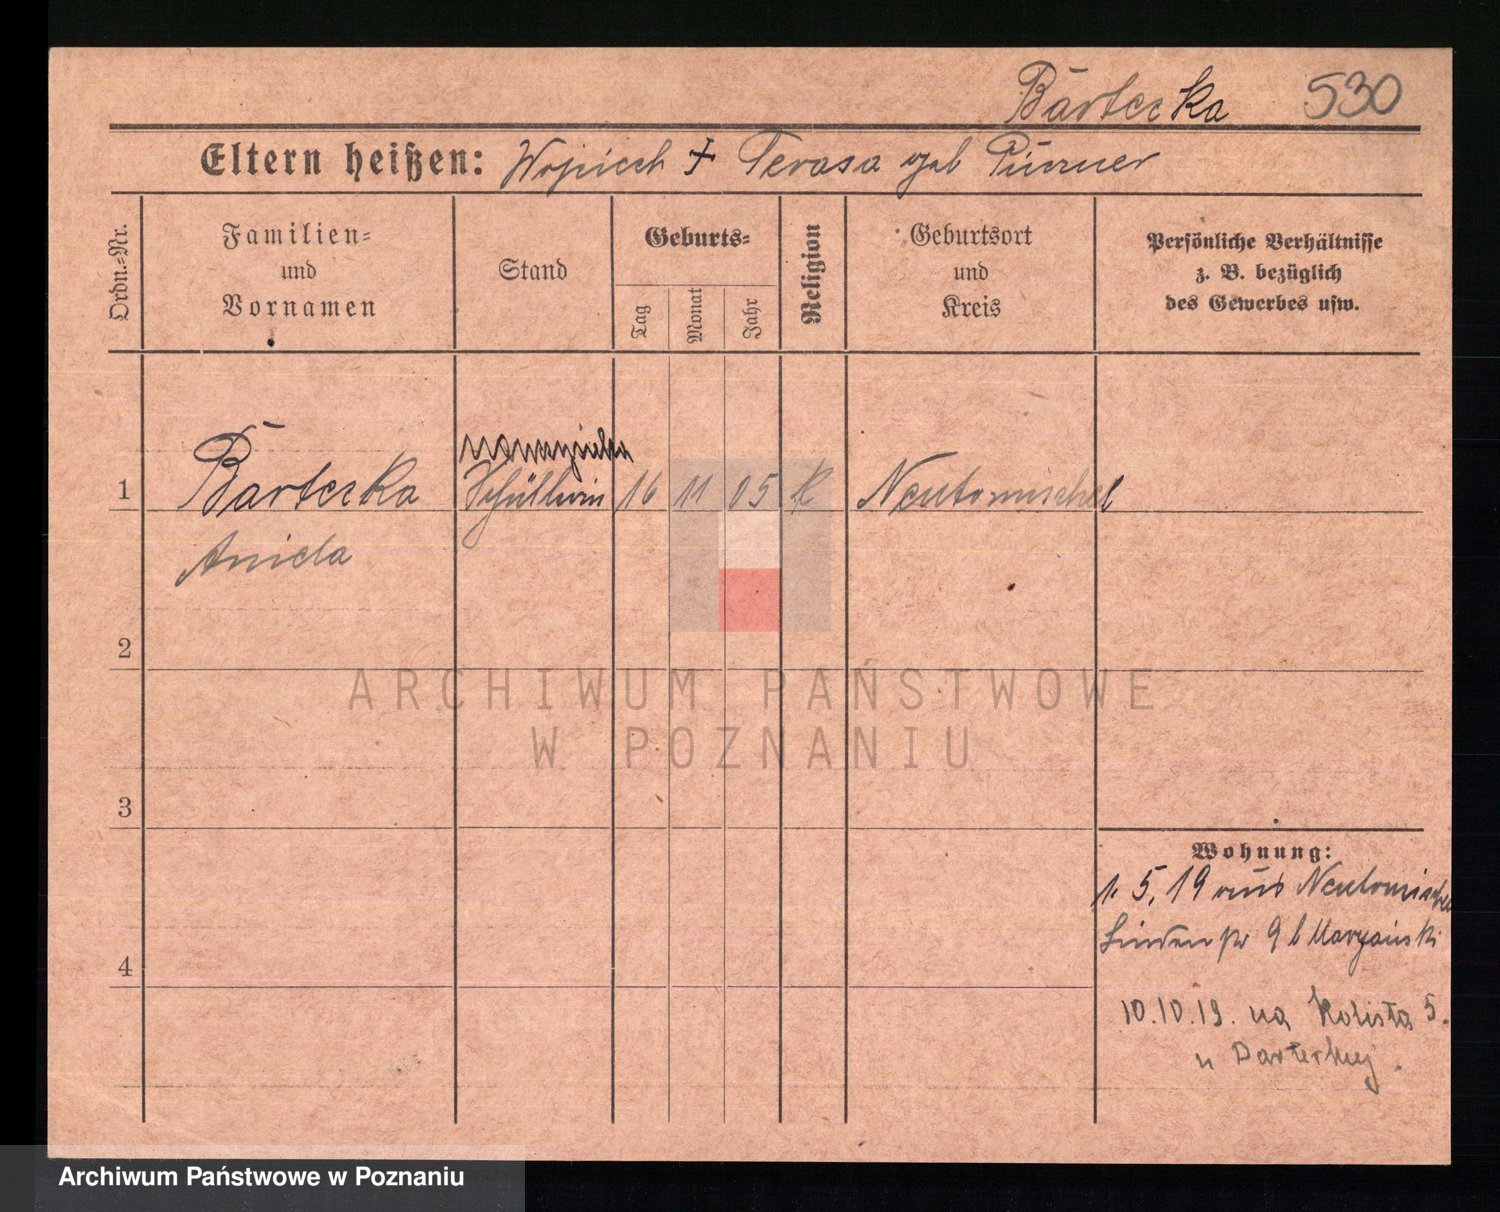 Bartecka 530
Eltern heißen: Wojciech + Terasa geb
Ordn.-Nr.
Familien- und Vornamen
Stand
Geburts-
Tag
Monat
Jahr
Religion
Geburtsort und Kreis
Persönliche Verhältnisse
z. B. bezüglich
des Gewerbes usw.
1 Bartecka Schülerin 16 11 05 K Neutomischel
Aniela
2
3
4
ARCHIWUM PAŃSTWOWE
W POZNANIU
Wohnung:
1. 5. 19 aus Neutomischel
Linden 9 b Maryański
10.10.19. na 5.
u Barteckiej.
Archiwum Państwowe w Poznaniu